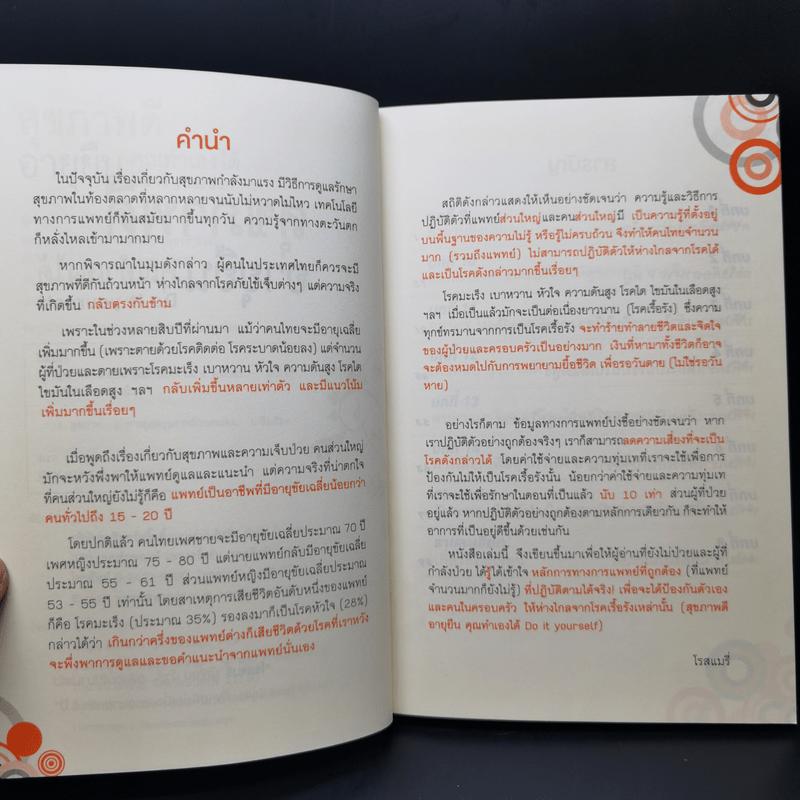 คำนำ
ในปัจจุบัน เรื่องเกี่ยวกับสุขภาพกำลังมาแรง มีวิธีการดูแลรักษา
สุขภาพในท้องตลาดที่หลากหลายจนนับไม่หวาดไม่ไหว เทคโนโลยี
ทางการแพทย์ก็ทันสมัยมากขึ้นทุกวัน ความรู้จากทางตะวันตก
ก็หลั่งไหลเข้ามามากมาย
หากพิจารณาในมุมดังกล่าว ผู้คนในประเทศไทยก็ควรจะมี
สุขภาพที่ดีกันถ้วนหน้า ห่างไกลจากโรคภัยไข้เจ็บต่างๆ แต่ความจริง
ที่เกิดขึ้น กลับตรงกันข้าม
เพราะในช่วงหลายสิบปีที่ผ่านมา แม้ว่าคนไทยจะมีอายุเฉลี่ย
เพิ่มมากขึ้น (เพราะตายด้วยโรคติดต่อ โรคระบาดน้อยลง) แต่จำนวน
ผู้ที่ป่วยและตายเพราะโรคมะเร็ง เบาหวาน หัวใจ ความดันสูง โรคไต
ไขมันในเลือดสูง ฯลฯ กลับเพิ่มขึ้นหลายเท่าตัว และมีแนวโน้ม
เพิ่มมากขึ้นเรื่อยๆ
เมื่อพูดถึงเรื่องเกี่ยวกับสุขภาพและความเจ็บป่วย คนส่วนใหญ่
มักจะหวังพึ่งพาให้แพทย์ดูแลและแนะนำ แต่ความจริงที่น่าตกใจ
ที่คนส่วนใหญ่ยังไม่รู้ก็คือ แพทย์เป็นอาชีพที่มีอายุขัยเฉลี่ยน้อยกว่า
คนทั่วไปถึง 15 - 20 ปี
โดยปกติแล้ว คนไทยเพศชายจะมีอายุขัยเฉลี่ยประมาณ 70 ปี
เพศหญิงประมาณ 75 - 80 ปี แต่นายแพทย์กลับมีอายุขัยเฉลี่ย
ประมาณ 55 - 61 ปี ส่วนแพทย์หญิงมีอายุขัยเฉลี่ยประมาณ
53 - 55 ปี เท่านั้น โดยสาเหตุการเสียชีวิตอันดับหนึ่งของแพทย์
ก็คือ โรคมะเร็ง (ประมาณ 35%) รองลงมาก็เป็นโรคหัวใจ (28%)
กล่าวได้ว่า เกินกว่าครึ่งของแพทย์ต่างก็เสียชีวิตด้วยโรคที่เราหวัง
จะพึ่งพาการดูแลและขอคำแนะนำจากแพทย์นั่นเอง
สถิติดังกล่าวแสดงให้เห็นอย่างชัดเจนว่า ความรู้และวิธีการ
ปฏิบัติตัวที่แพทย์ส่วนใหญ่และคนส่วนใหญ่มี เป็นความรู้ที่ตั้งอยู่
บนพื้นฐานของความไม่รู้ หรือรู้ไม่ครบถ้วน จึงทำให้คนไทยจำนวน
มาก (รวมถึงแพทย์) ไม่สามารถปฏิบัติตัวให้ห่างไกลจากโรคได้
และเป็นโรคดังกล่าวมากขึ้นเรื่อยๆ
โรคมะเร็ง เบาหวาน หัวใจ ความดันสูง โรคไต ไขมันในเลือดสูง
ฯลฯ เมื่อเป็นแล้วมักจะเป็นต่อเนื่องยาวนาน (โรคเรื้อรัง) ซึ่งความ
ทุกข์ทรมานจากการเป็นโรคเรื้อรัง จะทำร้ายทำลายชีวิตและจิตใจ
ของผู้ป่วยและครอบครัวเป็นอย่างมาก เงินที่หามาทั้งชีวิตก็อาจ
จะต้องหมดไปกับการพยายามยื้อชีวิต เพื่อรอวันตาย (ไม่ใช่รอวัน
หาย)
อย่างไรก็ตาม ข้อมูลทางการแพทย์บ่งชี้อย่างชัดเจนว่า หาก
เราปฏิบัติตัวอย่างถูกต้องจริงๆ เราก็สามารถลดความเสี่ยงที่จะเป็น
โรคดังกล่าวได้ โดยค่าใช้จ่ายและความทุ่มเทที่เราจะใช้เพื่อการ
ป้องกันไม่ให้เป็นโรคเรื้อรังนั้น น้อยกว่าค่าใช้จ่ายและความทุ่มเท
ที่เราจะใช้เพื่อรักษาในตอนที่เป็นแล้ว นับ 10 เท่า ส่วนผู้ที่ป่วย
อยู่แล้ว หากปฏิบัติตัวอย่างถูกต้องตามหลักการเดียวกัน ก็จะทำให้
อาการที่เป็นอยู่ดีขึ้นด้วยเช่นกัน
หนังสือเล่มนี้ จึงเขียนขึ้นมาเพื่อให้ผู้อ่านที่ยังไม่ป่วยและผู้ที่
กำลังป่วย ได้รู้ได้เข้าใจ หลักการทางการแพทย์ที่ถูกต้อง (ที่แพทย์
จำนวนมากก็ยังไม่รู้) ที่ปฏิบัติตามได้จริง! เพื่อจะได้ป้องกันตัวเอง
และคนในครอบครัว ให้ห่างไกลจากโรคเรื้อรังเหล่านั้น (สุขภาพดี
อายุยืน คุณทำเองได้ Do it yourself)
โรสแมรี่